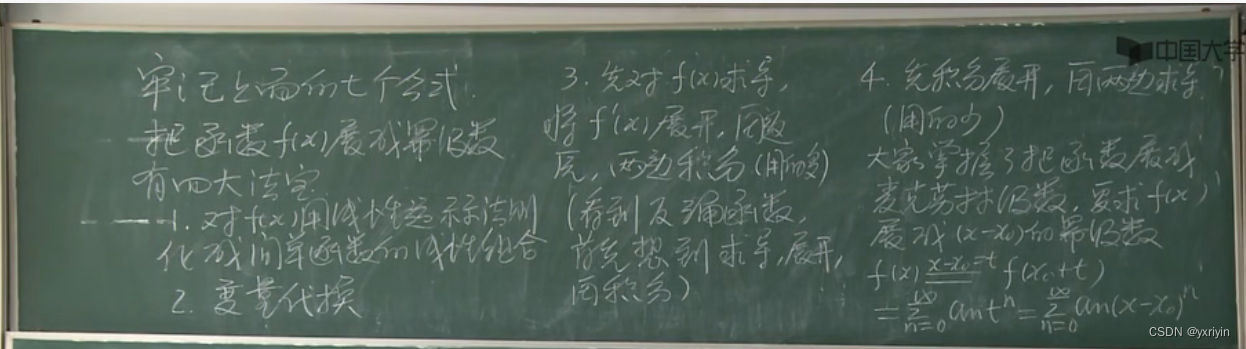 牢记上面的七个公式.
把函数f(x)展成幂级数
有四大法宝
1. 对f(x)用线性运算法则
化成简单函数的线性组合
2. 变量代换
3. 先对f(x)求导,
将f'(x)展开, 再
后, 两边积分(用的多)
(看到反三角函数,
首先想到求导, 展开,
再积分)
4. 先积分展开, 再两边求导
(用的少)
大家掌握了把函数展成
麦克劳林级数, 要求f(x)
展成(x-x₀)的幂级数
f(x) x-x₀=t f(x₀+t)
= ∑ₙ₌₀^∞ aₙtⁿ = ∑ₙ₌₀^∞ aₙ(x-x₀)ⁿ
中国大学
CSDN @yxriyin